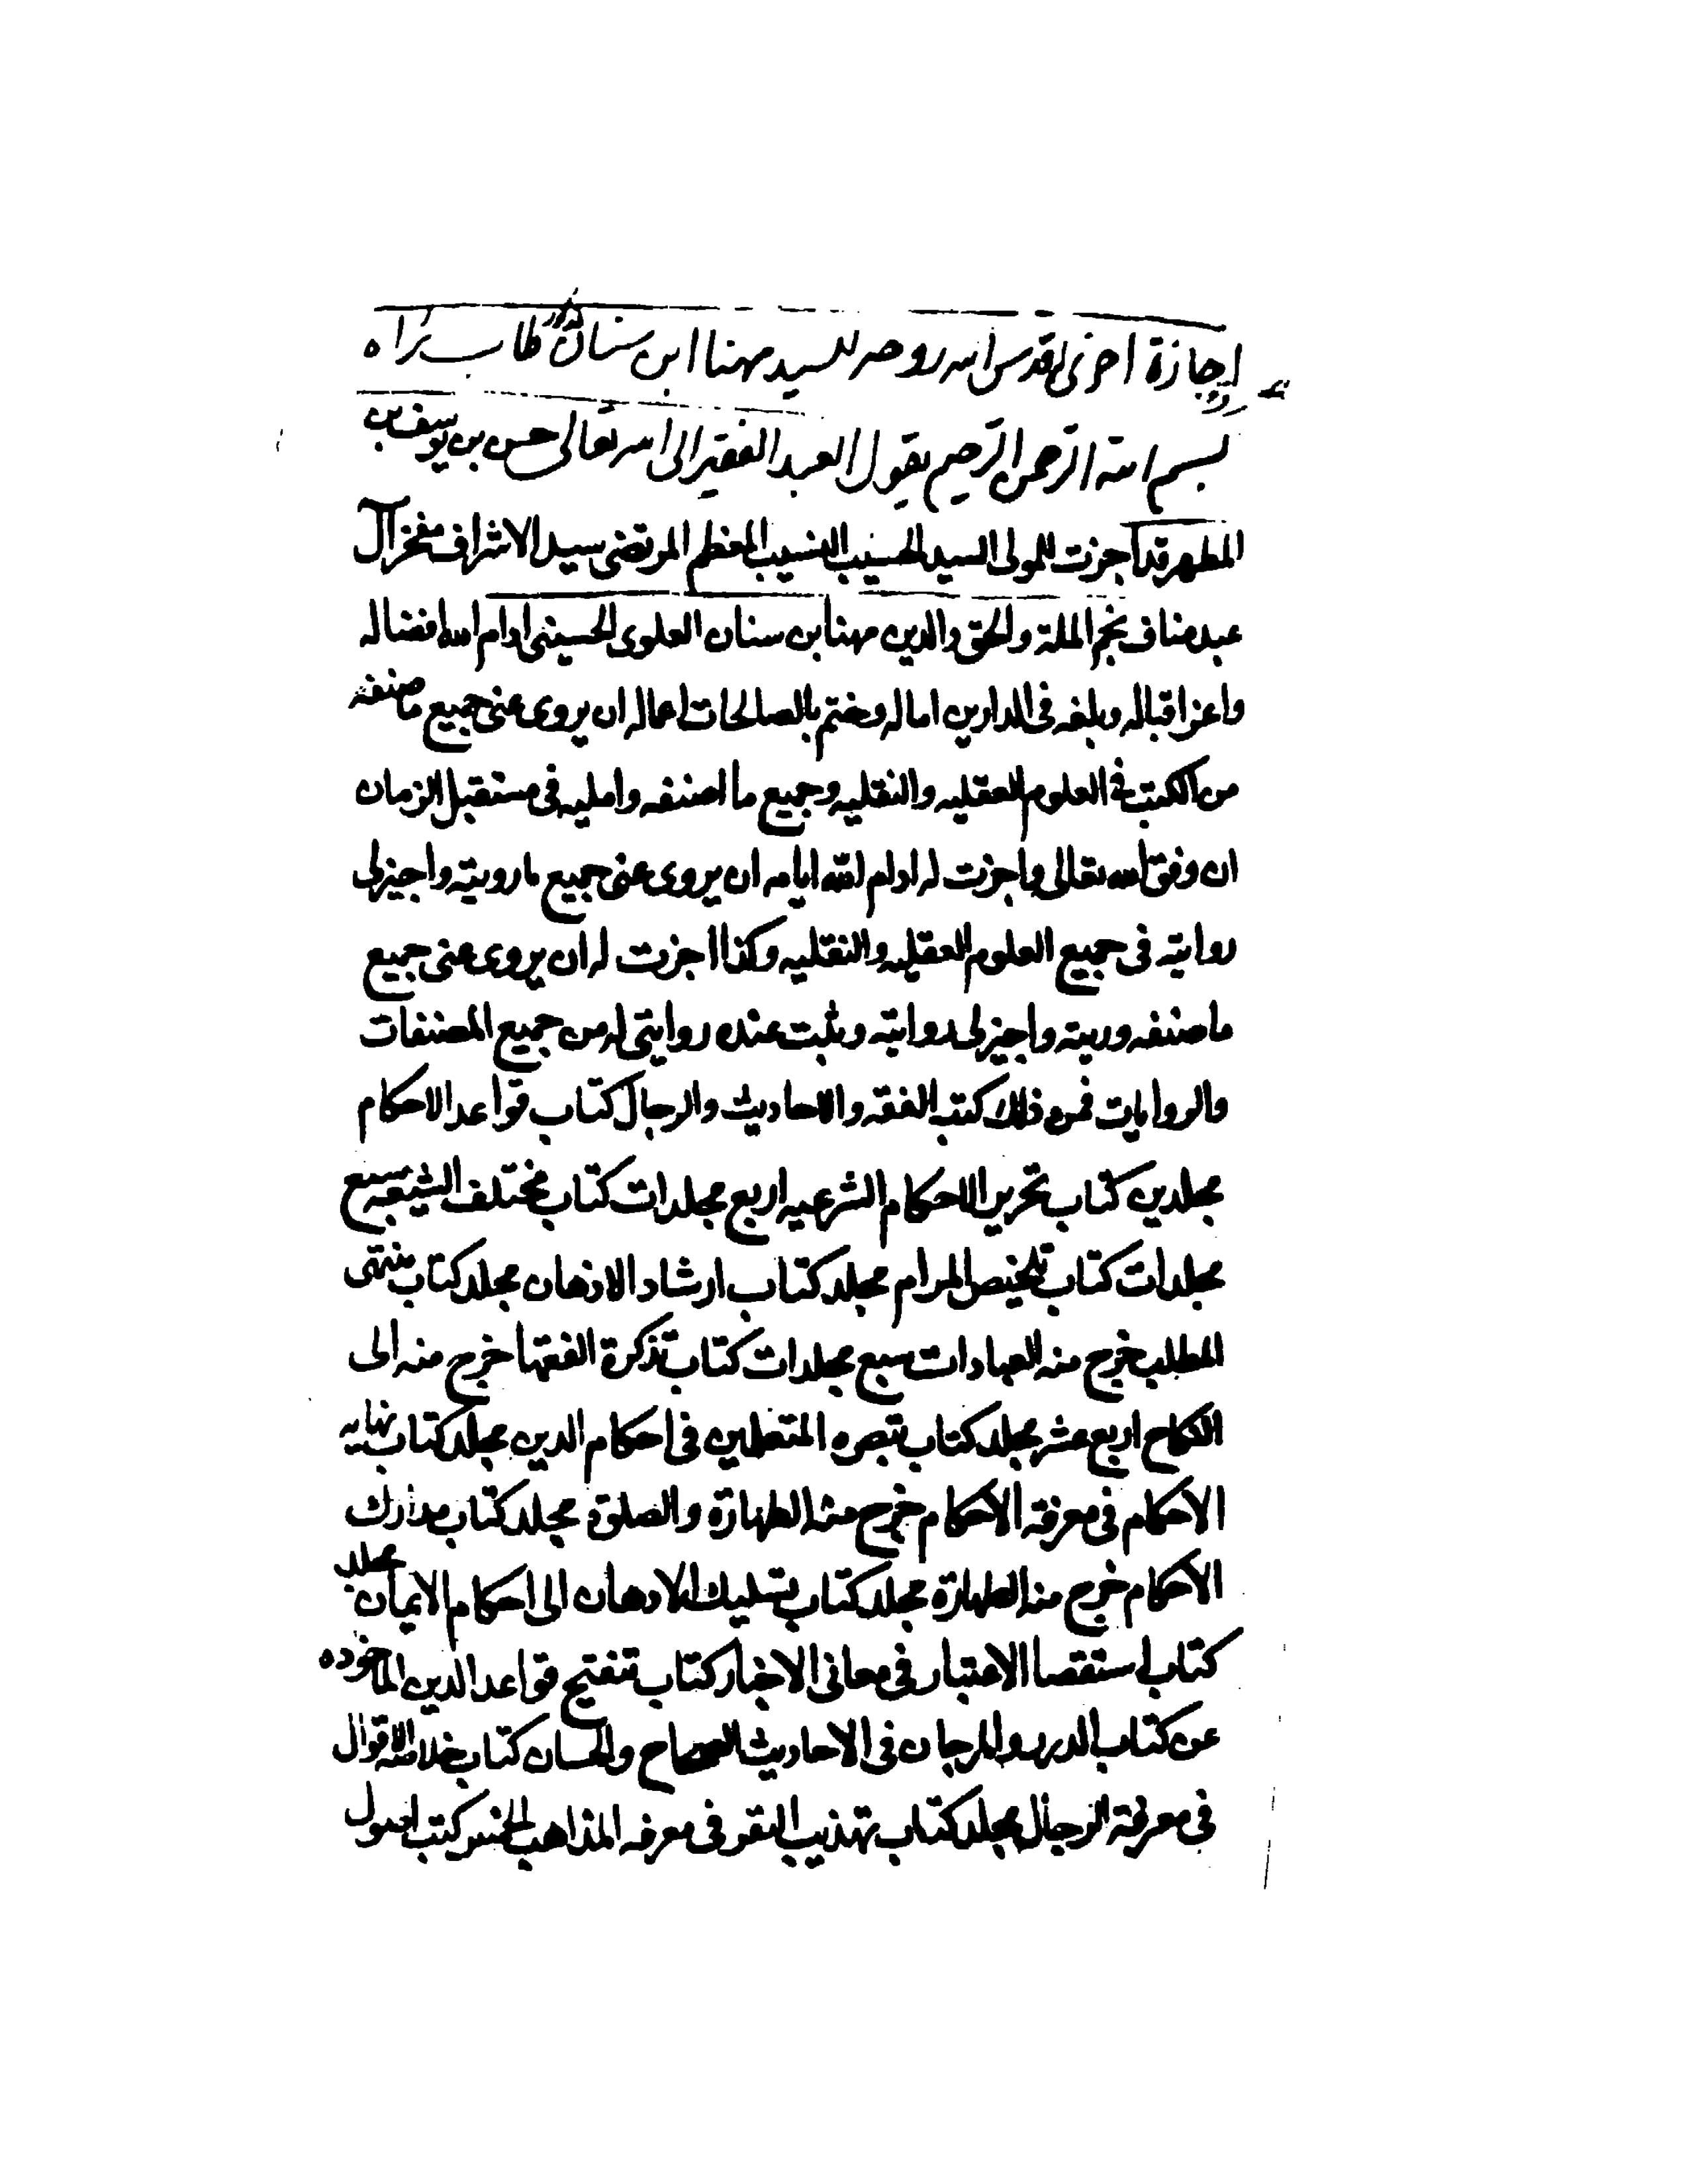 اجازة اخرى له قدس الله روحه للسيد مهنا ابن سنان طاب ثراه
بسم الله الرحمن الرحيم يقول العبد الفقير الى الله تعالى حسن بن يوسف بن
المطهر قد اجزت للمولى السيد الحسيب النسيب المعظم المرتضى سيد الاشراف مفخر آل
عبد مناف نجم الملة والحق والدين مهنا بن سنان العلوى الحسينى ادام الله افضاله
واعز اقباله وبلغه فى الدارين اماله وختم بالصالحات اعماله ان يروى عنى جميع ما صنفه
من الكتب فى العلوم العقليه والنقليه وجميع ما اصنفه وامليه فى مستقبل الزمان
ان وفق الله تعالى واجزت له ادام الله ايامه ان يروى عنى جميع ما رويته واجيز لى
روايته فى جميع العلوم العقليه والنقليه وكذا اجزت له ان يروى عنى جميع
ما صنفه ورويته واجيز لى روايته ويثبت عنده روايتى له من جميع المصنفات
والروايات فمن ذلك كتب الفقه والاحاديث والرجال كتاب قواعد الاحكام
مجلدين كتاب تحرير الاحكام الشرعيه اربع مجلدات كتاب مختلف الشيعه سبع
مجلدات كتاب تلخيص المرام مجلد كتاب ارشاد الاذهان مجلد كتاب منتهى
المطلب خرج منه العبادات سبع مجلدات كتاب تذكرة الفقها خرج منه الى
النكاح اربع عشر مجلد كتاب تبصره المتعلمين فى احكام الدين مجلد كتاب نهايه
الاحكام فى معرفة الاحكام خرج منه الطهارة والصلوة مجلد كتاب مدارك
الاحكام خرج منه الطهارة مجلد كتاب تسليك الاذهان الى احكام الايمان مجلد
كتاب استقصا الاعتبار فى معانى الاخبار كتاب تنقيح قواعد الدين الماخوده
عن كتاب الدرر والمرجان فى الاحاديث الصحاح والحسان كتاب خلاصه الاقوال
فى معرفة الرجال مجلد كتاب تهذيب النفر فى معرفه المذاهب الخمس كتب اصول